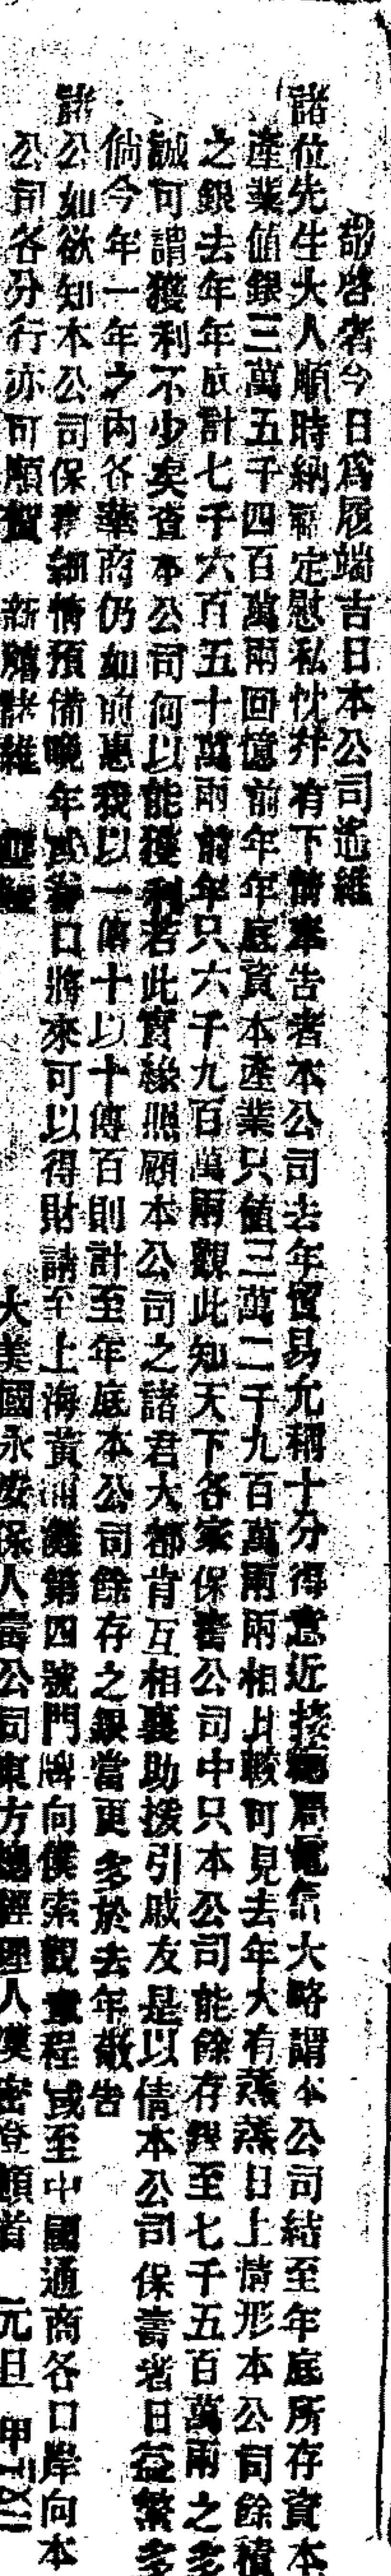 敬啓者今日爲履端吉日本公司遙維
諸位先生大人順時納福定慰私忱并有下情奉告者本公司去年貿易尤稱十分得意近接總局電信大略謂本公司結至年底所存資本
產業值銀三萬五千四百萬兩回憶前年年底資本產業只值三萬二千九百萬兩兩相比較可見去年大有蒸蒸日上情形本公司餘積
之銀去年年底計七千六百五十萬兩前年只六千九百萬兩觀此知天下各家保壽公司中只本公司能餘存銀至七千五百萬兩之多
誠可謂獲利不少矣查本公司何以能獲利若此實緣照顧本公司之諸君大都肯互相襄助援引戚友是以倩本公司保壽者日益繁多
倘今年一年之內各華商仍如前惠我以一傳十以十傳百則計至年底本公司餘存之銀當更多於去年敬告
諸公如欲知本公司保壽細情預備晚年或眷口將來可以得財請至上海黃浦灘第四號門牌向僕索觀章程或至中國通商各口岸向本
公司各分行亦可順賀 新禧諸維 亞鑒 大美國永安保人壽公司東方總經理人 密登頓首 元旦 甲